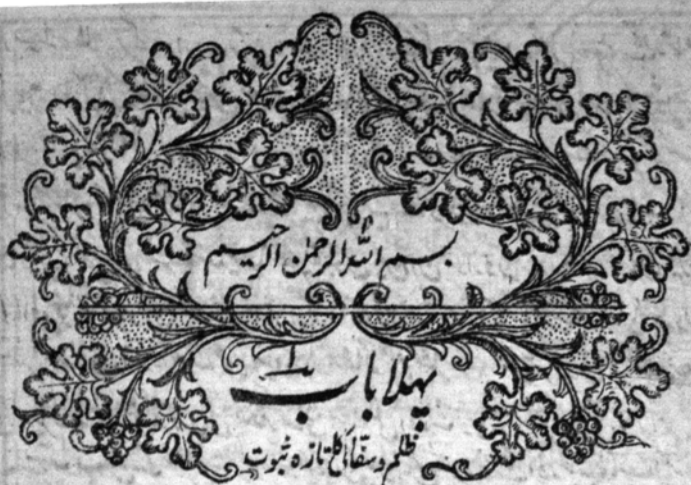 بسم اللہ الرحمٰن الرحیم
پہلا باب
۱
ظلم و سفاکی کا تازہ ثبوت